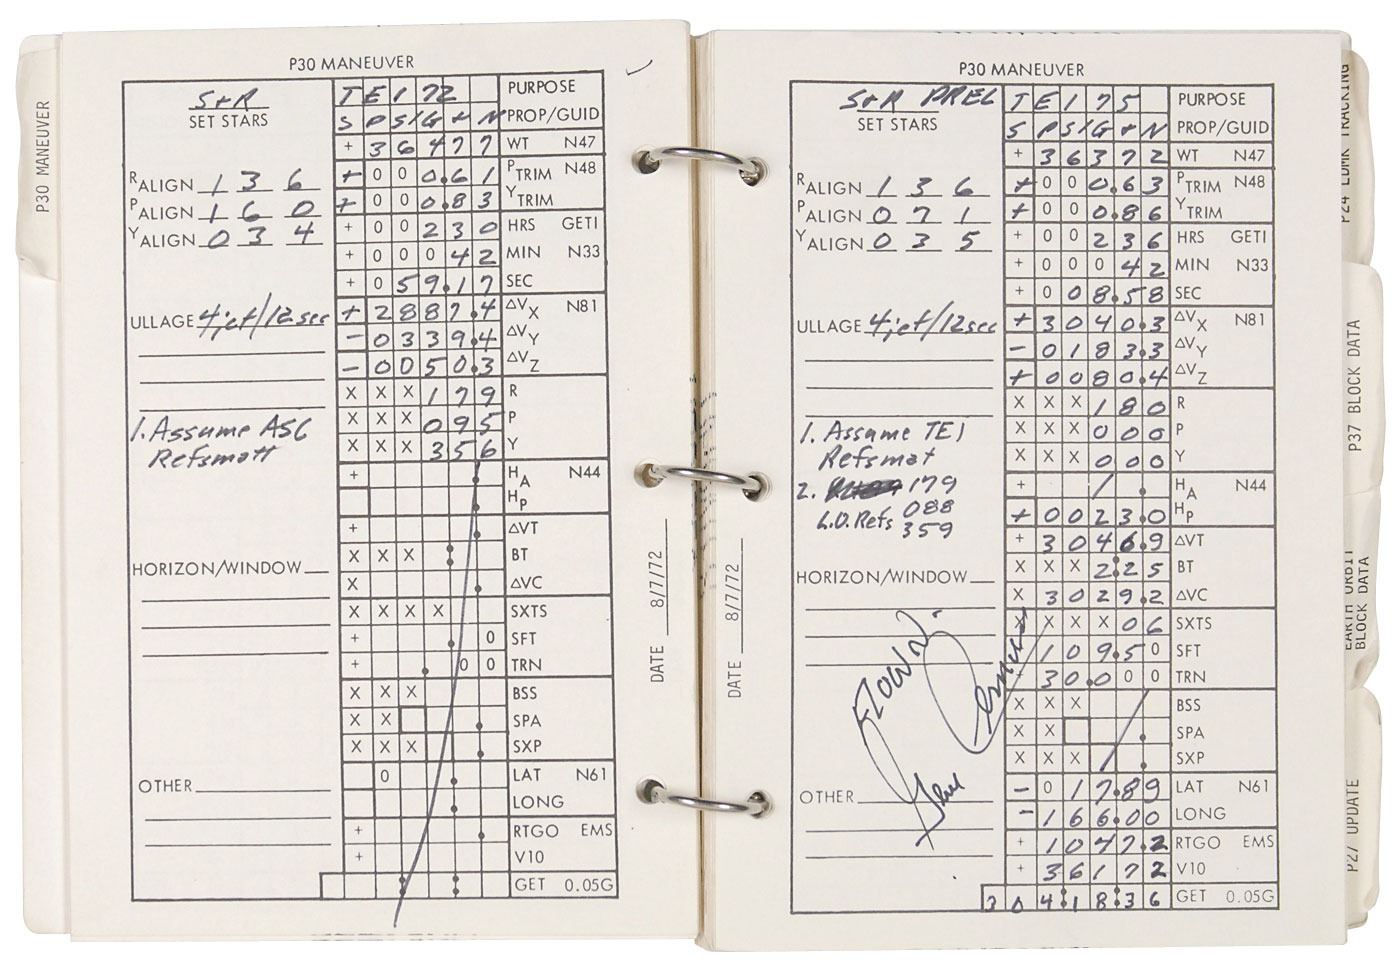 P30 MANEUVER
P30 MANEUVER
S+R
SET STARS
R ALIGN 1 3 6
P ALIGN 1 6 0
Y ALIGN 0 3 4
ULLAGE 4jet/12sec
1. Assume ASC
Refsmatt
HORIZON/WINDOW
OTHER
T E I 72 PURPOSE
S P S/G + N PROP/GUID
+ 3 6 4 7 7 WT N47
+ 0 0 0.6 1 P TRIM N48
+ 0 0 0.8 3 Y TRIM
+ 0 0 2 3 0 HRS GETI
+ 0 0 0 4 2 MIN N33
+ 0 5 9.1 7 SEC
+ 2 8 8 7.4 ΔVX N81
- 0 3 3 9.4 ΔVY
- 0 0 5 0.3 ΔVZ
X X X 1 7 9 R
X X X 0 9 5 P
X X X 3 5 6 Y
+ HA N44
HP
+ ΔVT
X X X BT
X ΔVC
X X X X SXTS
+ 0 SFT
+ 0 0 TRN
X X X BSS
X X SPA
X X X SXP
0 LAT N61
LONG
+ RTGO EMS
+ V10
GET 0.05G
DATE 8/7/72
P30 MANEUVER
S+R PREL
SET STARS
R ALIGN 1 3 6
P ALIGN 0 7 1
Y ALIGN 0 3 5
ULLAGE 4jet/12sec
1. Assume TEI
Refsmat
2. 179
L.O. Refs 088
359
HORIZON/WINDOW
FLOWN.
Gene Cernan
OTHER
T E I 75 PURPOSE
S P S/G + N PROP/GUID
+ 3 6 3 7 2 WT N47
+ 0 0 0.6 3 P TRIM N48
+ 0 0 0.8 6 Y TRIM
+ 0 0 2 3 6 HRS GETI
+ 0 0 0 4 2 MIN N33
+ 0 0 8.5 8 SEC
+ 3 0 4 0.3 ΔVX N81
- 0 1 8 3.3 ΔVY
+ 0 0 8 0.4 ΔVZ
X X X 1 8 0 R
X X X 0 0 0 P
X X X 0 0 0 Y
+ HA N44
+ 0 0 2 3.0 HP
+ 3 0 4 6.9 ΔVT
X X X 2:2 5 BT
X 3 0 2 9.2 ΔVC
X X X X 0 6 SXTS
+ 1 0 9.5 0 SFT
+ 3 0.0 0 0 TRN
X X X BSS
X X SPA
X X X SXP
- 0 1 7.8 9 LAT N61
- 1 6 6.0 0 LONG
+ 1 0 4 7.2 RTGO EMS
+ 3 6 1 7 2 V10
3 0 4:1 8:3 6 GET 0.05G
DATE 8/7/72
P24 LDMK TRACKING
P37 BLOCK DATA
EARTH ORBIT
BLOCK DATA
P27 UPDATE